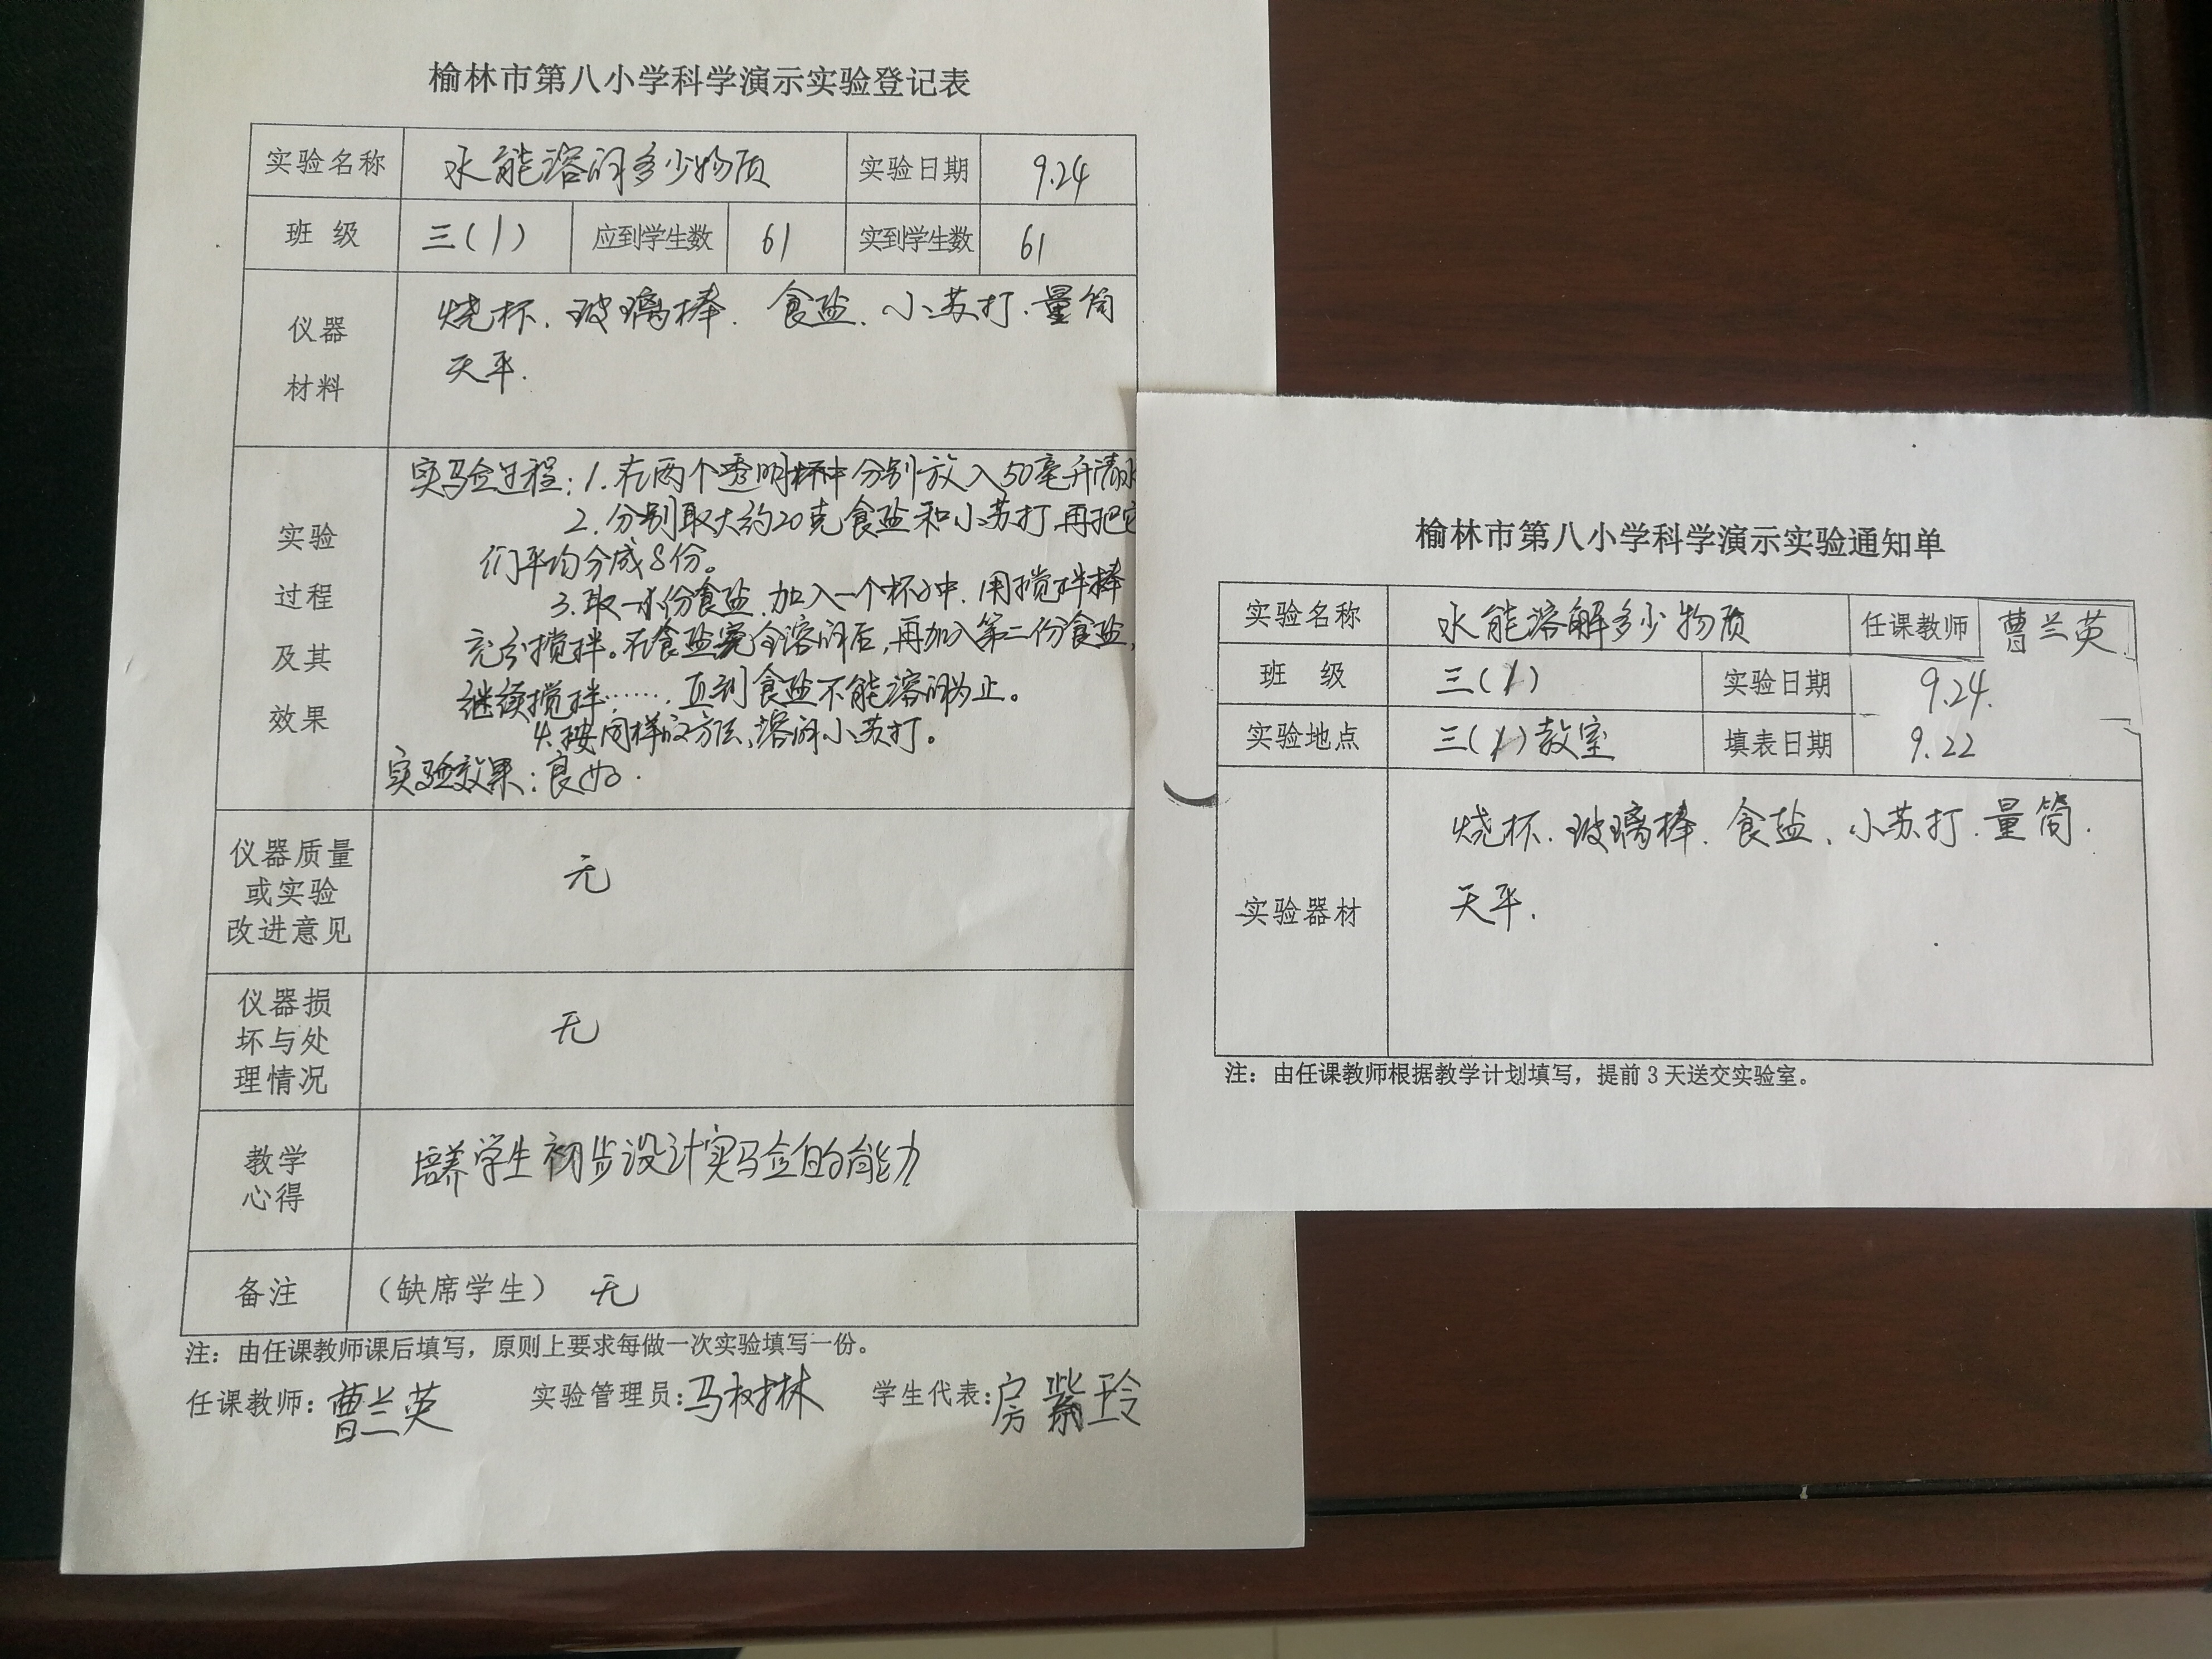 榆林市第八小学科学演示实验登记表
实验名称 水能溶解多少物质 实验日期 9.24
班 级 三(1) 应到学生数 61 实到学生数 61
仪器
材料
烧杯.玻璃棒.食盐.小苏打.量筒
天平.
实验
过程
及其
效果
实验过程:1.在两个透明杯中分别放入50毫升清水
2.分别取大约20克食盐和小苏打,再把它
们平均分成8份。
3.取一份食盐,加入一个杯中.用搅拌棒
充分搅拌。在食盐完全溶解后,再加入第二份食盐,
继续搅拌……直到食盐不能溶解为止。
4.按同样的方法,溶解小苏打。
实验效果:良好.
仪器质量
或实验
改进意见
无
仪器损
坏与处
理情况
无
教学
心得
培养学生初步设计实验的能力
备注 （缺席学生） 无
注：由任课教师课后填写，原则上要求每做一次实验填写一份。
任课教师：曹兰英 实验管理员：马树林 学生代表：房紫玲
榆林市第八小学科学演示实验通知单
实验名称 水能溶解多少物质 任课教师 曹兰英
班 级 三(1) 实验日期 9.24.
实验地点 三(1)教室 填表日期 9.22
实验器材
烧杯.玻璃棒.食盐、小苏打.量筒.
天平.
注：由任课教师根据教学计划填写，提前3天送交实验室。